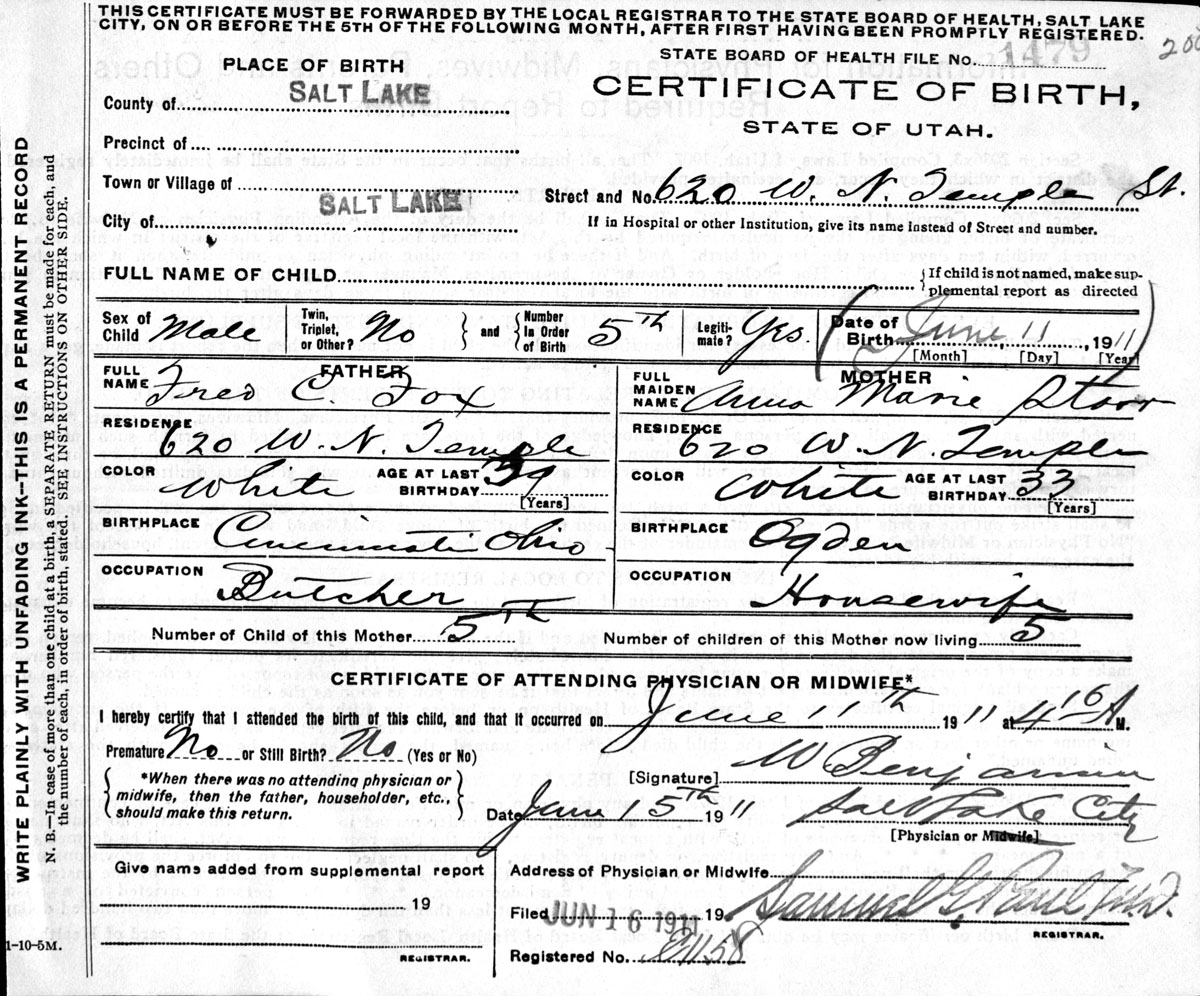 THIS CERTIFICATE MUST BE FORWARDED BY THE LOCAL REGISTRAR TO THE STATE BOARD OF HEALTH, SALT LAKE
CITY, ON OR BEFORE THE 5TH OF THE FOLLOWING MONTH, AFTER FIRST HAVING BEEN PROMPTLY REGISTERED.
STATE BOARD OF HEALTH FILE No. 1479
PLACE OF BIRTH
CERTIFICATE OF BIRTH,
County of SALT LAKE
STATE OF UTAH.
Precinct of
Town or Village of
Street and No. 620 W. N. Temple St.
City of SALT LAKE
If in Hospital or other Institution, give its name instead of Street and number.
FULL NAME OF CHILD
{If child is not named, make sup-
plemental report as directed
Sex of Child Male
Twin, Triplet, or Other? No
and {Number In Order of Birth 5th
Legiti-mate? Yes
Date of Birth June 11, 1911
[Month] [Day] [Year]
FATHER
FULL NAME Fred C Fox
MOTHER
FULL MAIDEN NAME Anna Marie
RESIDENCE 620 W. N. Temple
RESIDENCE 620 W. N. Temple
COLOR White AGE AT LAST BIRTHDAY 39 [Years]
COLOR White AGE AT LAST BIRTHDAY 33 [Years]
BIRTHPLACE Cincinnati Ohio
BIRTHPLACE Ogden
OCCUPATION Butcher
OCCUPATION Housewife
Number of Child of this Mother 5th
Number of children of this Mother now living 5
CERTIFICATE OF ATTENDING PHYSICIAN OR MIDWIFE*
I hereby certify that I attended the birth of this child, and that it occurred on June 11th 1911 at 4 A M.
Premature No or Still Birth? No (Yes or No)
*When there was no attending physician or
midwife, then the father, householder, etc.,
should make this return.
[Signature] W Benjamin
Date June 15th 1911 Salt Lake City
[Physician or Midwife]
Give name added from supplemental report
Address of Physician or Midwife
19
Filed JUN 16 1911 19 Samuel G. Paul M.D.
REGISTRAR.
REGISTRAR.
Registered No.
1-10-5M.
WRITE PLAINLY WITH UNFADING INK—THIS IS A PERMANENT RECORD
N. B.—In case of more than one child at a birth, a SEPARATE RETURN must be made for each, and
the number of each, in order of birth, stated. SEE INSTRUCTIONS ON OTHER SIDE.